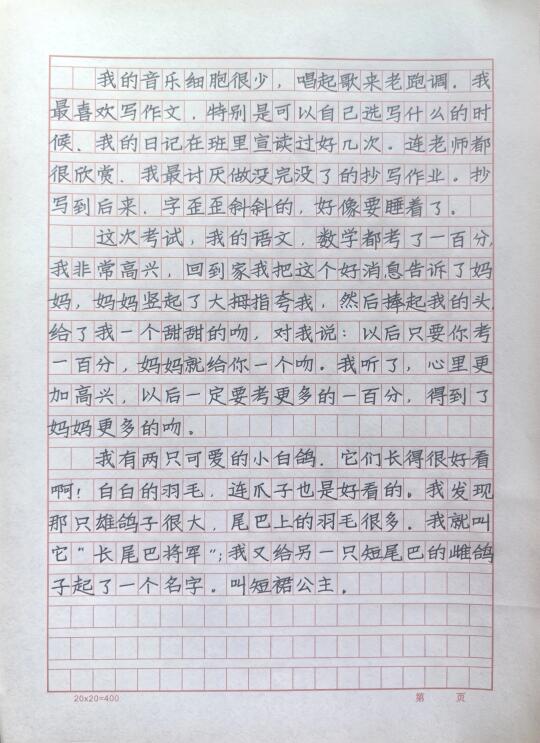 我的音乐细胞很少，唱起歌来老跑调．我
最喜欢写作文．特别是可以自己选写什么的时
候．我的日记在班里宣读过好几次。连老师都
很欣赏．我最讨厌做没完没了的抄写作业。抄
写到后来．字歪歪斜斜的，好像要睡着了。
这次考试，我的语文，数学都考了一百分，
我非常高兴，回到家我把这个好消息告诉了妈
妈，妈妈竖起了大拇指夸我，然后捧起我的头，
给了我一个甜甜的吻，对我说：以后只要你考
一百分，妈妈就给你一个吻。我听了，心里更
加高兴，以后一定要考更多的一百分，得到了
妈妈更多的吻。
我有两只可爱的小白鸽．它们长得很好看
啊！白白的羽毛，连爪子也是好看的。我发现
那只雄鸽子很大，尾巴上的羽毛很多。我就叫
它“长尾巴将军”；我又给另一只短尾巴的雌鸽
子起了一个名字。叫短裙公主。
20x20=400 第 页